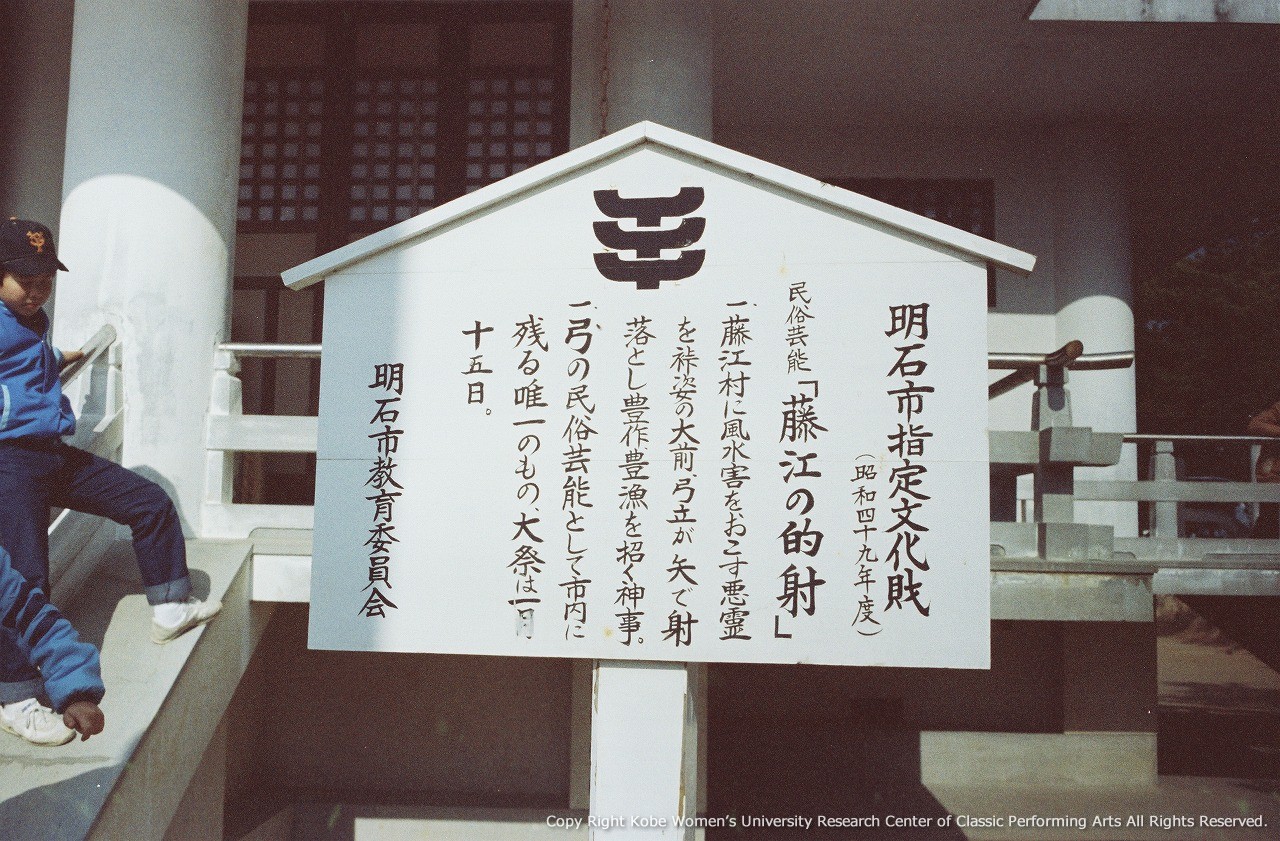 明石市指定文化財
(昭和四十九年度)
民俗芸能「藤江の的射」
一、藤江村に風水害をおこす悪霊
を裃姿の大前、弓立が矢で射
落とし豊作、豊漁を招く神事。
一、弓の民俗芸能として市内に
残る唯一のもの、大祭は一月
十五日。
明石市教育委員会
Copy Right Kobe Women's University Research Center of Classic Performing Arts All Rights Reserved.